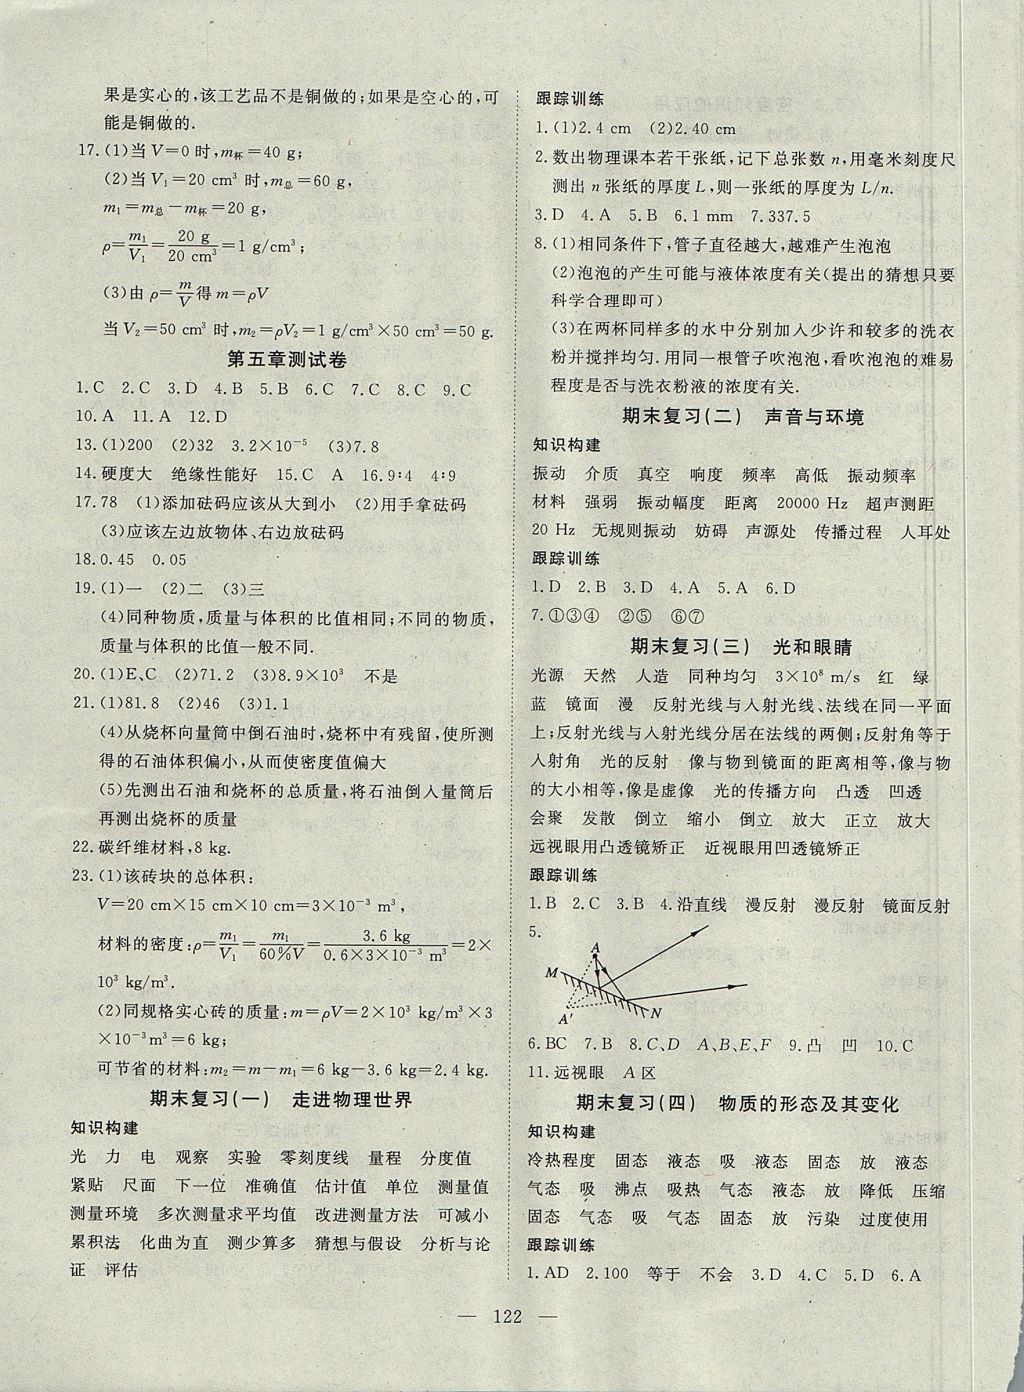 果是实心的,该工艺品不是铜做的;如果是空心的,可
能是铜做的.
17.(1)当V=0时,m杯=40 g;
(2)当V₁=20 cm³时,m总=60 g,
m₁=m总-m杯=20 g,
ρ=m₁/V₁=20 g/20 cm³=1 g/cm³;
(3)由ρ=m/V得m=ρV
当V₂=50 cm³时,m₂=ρV₂=1 g/cm³×50 cm³=50 g.
第五章测试卷
1.C 2.C 3.D 4.B 5.B 6.C 7.C 8.C 9.C
10.A 11.A 12.D
13.(1)200 (2)32 3.2×10⁻⁵ (3)7.8
14.硬度大 绝缘性能好 15.C A 16.9∶4 4∶9
17.78 (1)添加砝码应该从大到小 (2)用手拿砝码
(3)应该左边放物体、右边放砝码
18.0.45 0.05
19.(1)一 (2)二 (3)三
(4)同种物质,质量与体积的比值相同;不同的物质,
质量与体积的比值一般不同.
20.(1)E、C (2)71.2 (3)8.9×10³ 不是
21.(1)81.8 (2)46 (3)1.1
(4)从烧杯向量筒中倒石油时,烧杯中有残留,使所测
得的石油体积偏小,从而使密度值偏大
(5)先测出石油和烧杯的总质量,将石油倒入量筒后
再测出烧杯的质量
22.碳纤维材料,8 kg.
23.(1)该砖块的总体积:
V=20 cm×15 cm×10 cm=3×10⁻³ m³,
材料的密度:ρ=m₁/V₁=m₁/60%V=3.6 kg/0.6×3×10⁻³ m³=2×
10³ kg/m³.
(2)同规格实心砖的质量:m=ρV=2×10³ kg/m³×3
×10⁻³m³=6 kg;
可节省的材料:m₂=m-m₁=6 kg-3.6 kg=2.4 kg.
期末复习(一) 走进物理世界
知识构建
光 力 电 观察 实验 零刻度线 量程 分度值
紧贴 尺面 下一位 准确值 估计值 单位 测量值
测量环境 多次测量求平均值 改进测量方法 可减小
累积法 化曲为直 测少算多 猜想与假设 分析与论
证 评估
跟踪训练
1.(1)2.4 cm (2)2.40 cm
2.数出物理课本若干张纸,记下总张数n,用毫米刻度尺
测出n张纸的厚度L,则一张纸的厚度为L/n.
3.D 4.A 5.B 6.1 mm 7.337.5
8.(1)相同条件下,管子直径越大,越难产生泡泡
(2)泡泡的产生可能与液体浓度有关(提出的猜想只要
科学合理即可)
(3)在两杯同样多的水中分别加入少许和较多的洗衣
粉并搅拌均匀.用同一根管子吹泡泡,看吹泡泡的难易
程度是否与洗衣粉液的浓度有关.
期末复习(二) 声音与环境
知识构建
振动 介质 真空 响度 频率 高低 振动频率
材料 强弱 振动幅度 距离 20000 Hz 超声测距
20 Hz 无规则振动 妨碍 声源处 传播过程 人耳处
跟踪训练
1.D 2.B 3.D 4.A 5.A 6.D
7.①③④ ②⑤ ⑥⑦
期末复习(三) 光和眼睛
光源 天然 人造 同种均匀 3×10⁸ m/s 红 绿
蓝 镜面 漫 反射光线与入射光线、法线在同一平面
上;反射光线与入射光线分居在法线的两侧;反射角等于
入射角 光的反射 像与物到镜面的距离相等,像与物
的大小相等,像是虚像 光的传播方向 凸透 凹透
会聚 发散 倒立 缩小 倒立 放大 正立 放大
远视眼用凸透镜矫正 近视眼用凹透镜矫正
跟踪训练
1.B 2.C 3.B 4.沿直线 漫反射 漫反射 镜面反射
5.
A
M
A′
N
6.BC 7.B 8.C、D A、B、E、F 9.凸 凹 10.C
11.远视眼 A区
期末复习(四) 物质的形态及其变化
知识构建
冷热程度 固态 液态 吸 液态 固态 放 液态
气态 吸 沸点 吸热 气态 液态 放 降低 压缩
固态 气态 吸 气态 固态 放 污染 过度使用
跟踪训练
1.AD 2.100 等于 不会 3.D 4.C 5.D 6.A
— 122 —